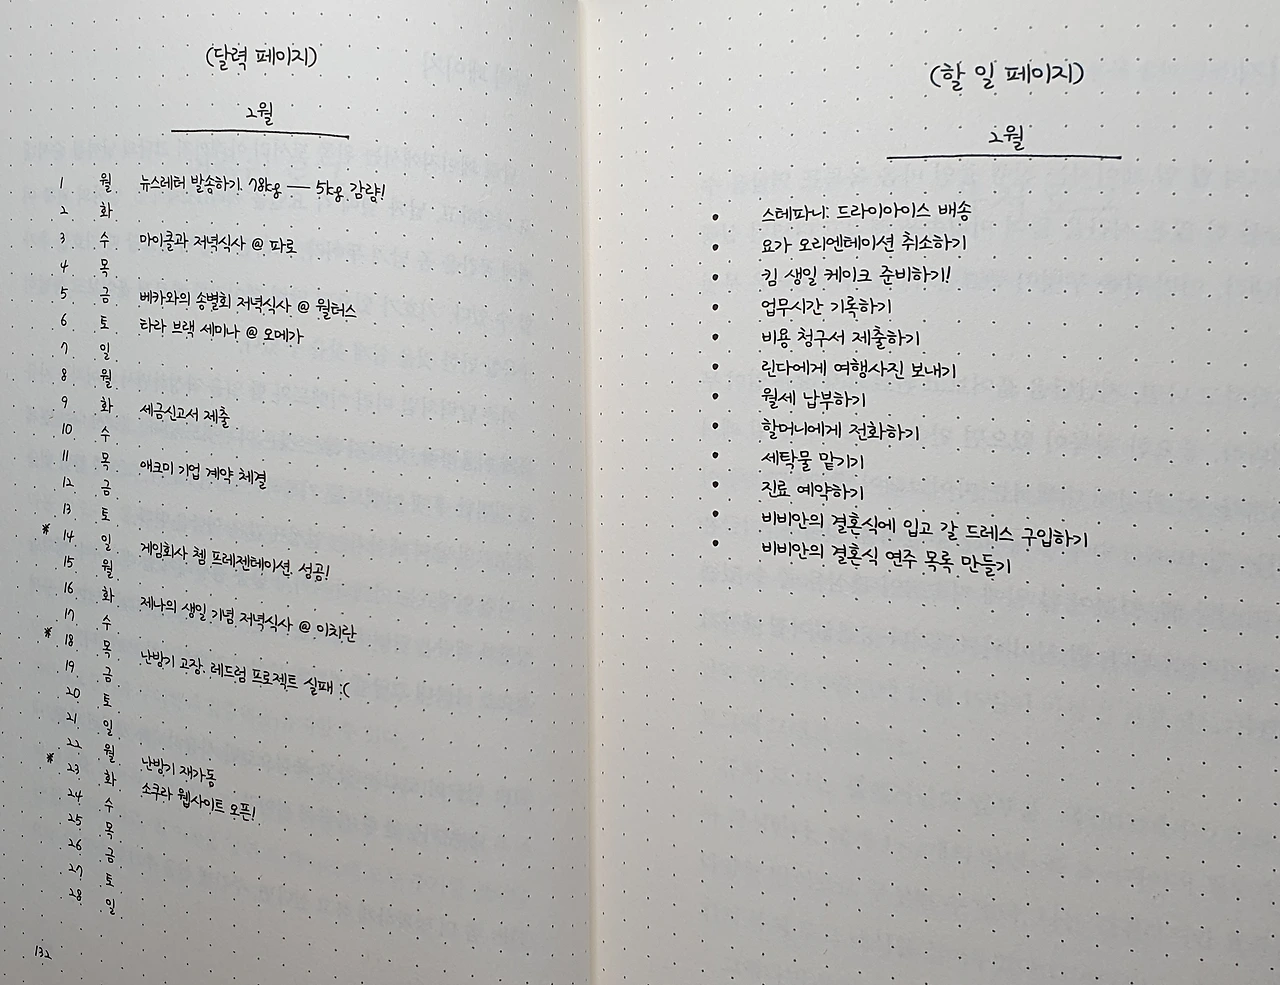 (달력 페이지)
2월
1 월 뉴스레터 발송하기. 78kg — 5kg 감량!
2 화
3 수 마이클과 저녁식사 @ 파로
4 목
5 금 베카와의 송별회 저녁식사 @ 월터스
6 토 타라 브랙 세미나 @ 오메가
7 일
8 월
9 화 세금신고서 제출
10 수
11 목 애크미 기업 계약 체결
12 금
13 토
* 14 일 게임회사 쳄 프레젠테이션. 성공!
15 월
16 화 제나의 생일 기념 저녁식사 @ 이치란
17 수
* 18 목 난방기 고장. 레드럼 프로젝트 실패 :(
19 금
20 토
21 일
22 월 난방기 재가동
* 23 화 소쿠라 웹사이트 오픈!
24 수
25 목
26 금
27 토
28 일
132
(할 일 페이지)
2월
• 스테파니: 드라이아이스 배송
• 요가 오리엔테이션 취소하기
• 킴 생일 케이크 준비하기!
• 업무시간 기록하기
• 비용 청구서 제출하기
• 린다에게 여행사진 보내기
• 월세 납부하기
• 할머니에게 전화하기
• 세탁물 맡기기
• 진료 예약하기
• 비비안의 결혼식에 입고 갈 드레스 구입하기
• 비비안의 결혼식 연주 목록 만들기